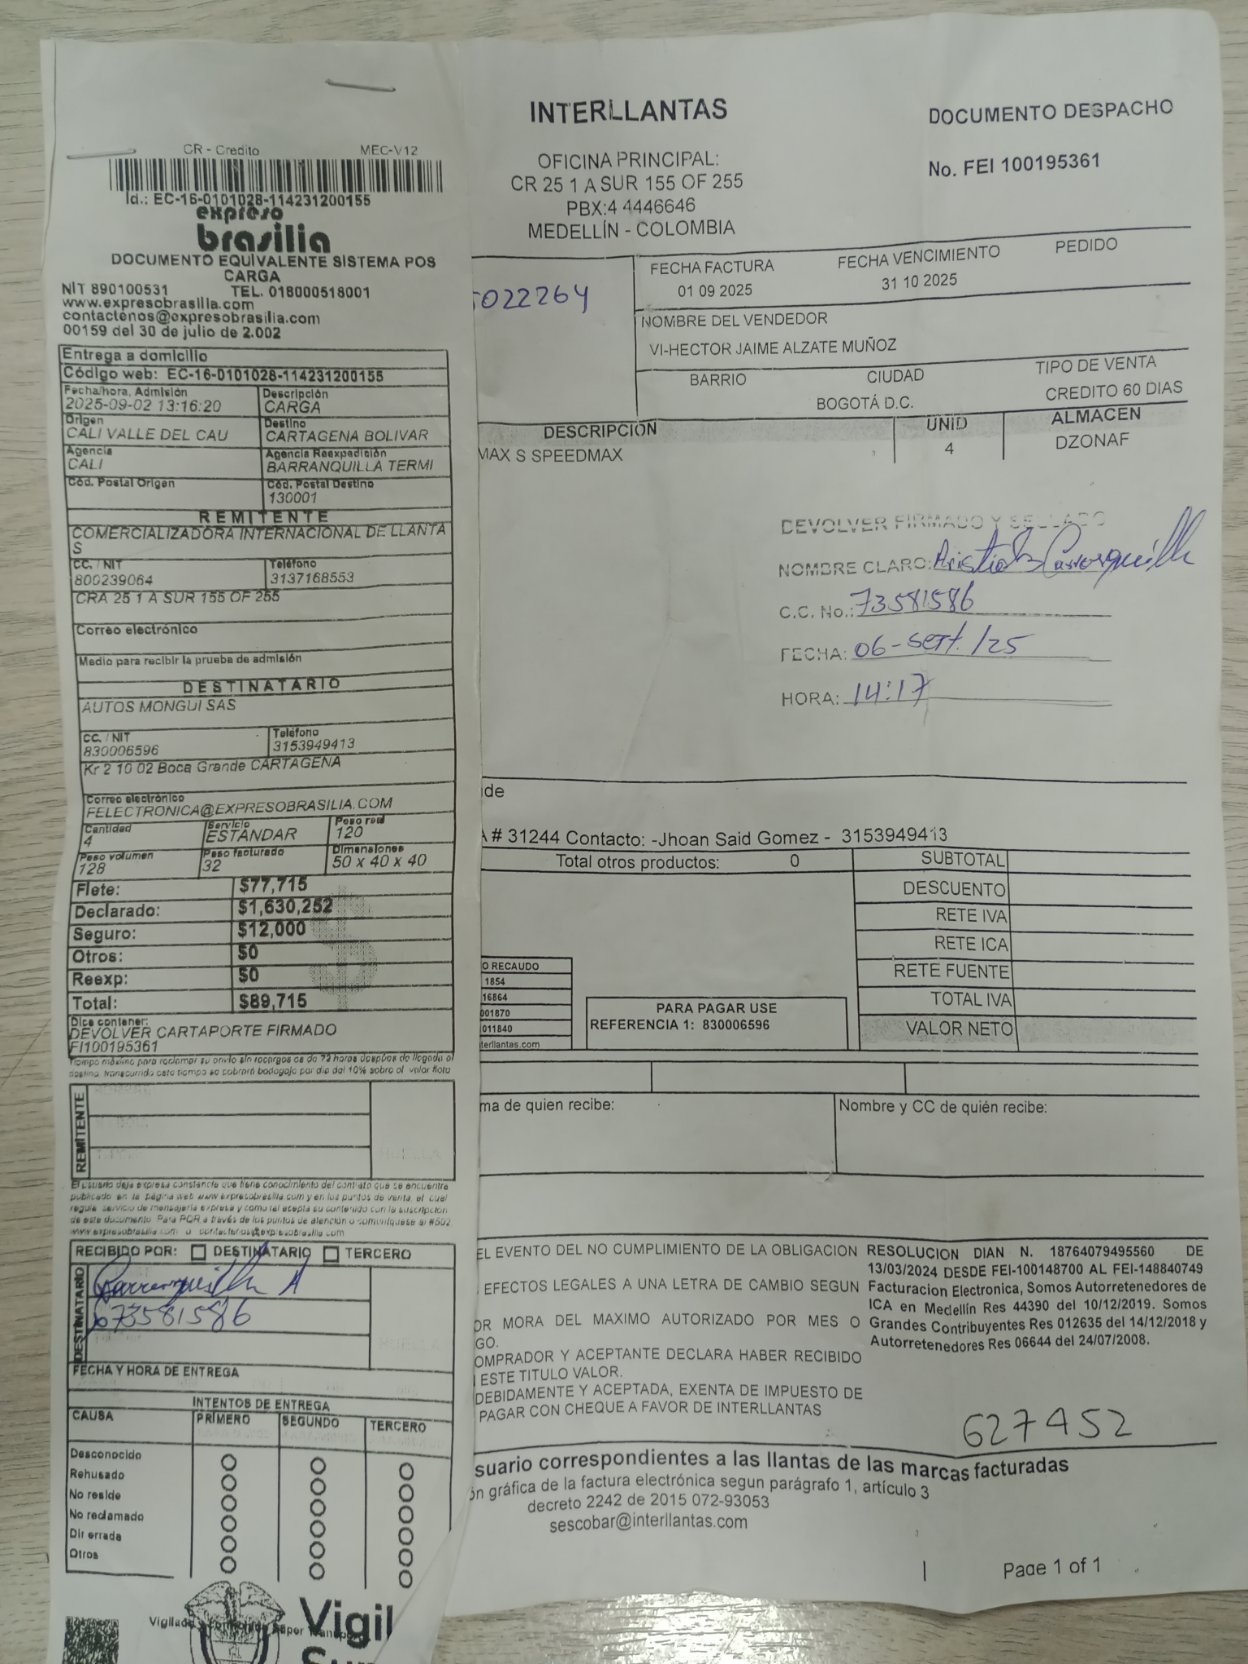 CR - Credito MEC-V12
Id.: EC-16-0101028-114231200155
expreso
brasilia
DOCUMENTO EQUIVALENTE SISTEMA POS
CARGA
NIT 890100531 TEL. 018000518001
www.expresobrasilia.com
contactenos@expresobrasilia.com
00159 del 30 de julio de 2.002
Entrega a domicilio
Código web: EC-16-0101028-114231200155
Fecha/hora, Admisión Descripción
2025-09-02 13:16:20 CARGA
Origen Destino
CALI VALLE DEL CAU CARTAGENA BOLIVAR
Agencia Agencia Reexpedición
CALI BARRANQUILLA TERMI
Cód. Postal Origen Cód. Postal Destino
130001
REMITENTE
COMERCIALIZADORA INTERNACIONAL DE LLANTA
S
CC. / NIT Teléfono
800239064 3137168553
CRA 25 1 A SUR 155 OF 255
Correo electrónico
Medio para recibir la prueba de admisión
DESTINATARIO
AUTOS MONGUI SAS
CC. / NIT Teléfono
830006596 3153949413
Kr 2 10 02 Boca Grande CARTAGENA
Correo electrónico
FELECTRONICA@EXPRESOBRASILIA.COM
Cantidad Servicio Peso real
4 ESTANDAR 120
Peso volumen Peso facturado Dimensiones
128 32 50 x 40 x 40
Flete: $77,715
Declarado: $1,630,252
Seguro: $12,000
Otros: $0
Reexp: $0
Total: $89,715
Dice contener:
DEVOLVER CARTAPORTE FIRMADO
FI100195361
Tiempo máximo para reclamar su envío sin recargos es de 72 horas después de llegada al
destino, transcurrido este tiempo se cobrará bodegaje por día del 10% sobre el valor flete
REMITENTE
HUELLA
El usuario deja expresa constancia que tiene conocimiento del contrato que se encuentra
publicado en la página web www.expresobrasilia.com y en los puntos de venta, el cual
regula servicio de mensajería expresa y como tal acepta su contenido con la suscripción
de este documento. Para PQR a través de los puntos de atención o comuníquese al #502
www.expresobrasilia.com o contactenos@expresobrasilia.com
RECIBIDO POR: DESTINATARIO TERCERO
DESTINATARIO
Carrasquilla A
73581586
HUELLA
FECHA Y HORA DE ENTREGA
INTENTOS DE ENTREGA
CAUSA PRIMERO SEGUNDO TERCERO
Desconocido
Rehusado
No reside
No reclamado
Dir errada
Otros
Vigil
INTERLLANTAS
OFICINA PRINCIPAL:
CR 25 1 A SUR 155 OF 255
PBX:4 4446646
MEDELLÍN - COLOMBIA
DOCUMENTO DESPACHO
No. FEI 100195361
5022264
FECHA FACTURA FECHA VENCIMIENTO PEDIDO
01 09 2025 31 10 2025
NOMBRE DEL VENDEDOR
VI-HECTOR JAIME ALZATE MUÑOZ
BARRIO CIUDAD TIPO DE VENTA
BOGOTÁ D.C. CREDITO 60 DIAS
DESCRIPCIÓN UNID ALMACEN
MAX S SPEEDMAX 4 DZONAF
DEVOLVER FIRMADO Y SELLADO
NOMBRE CLARO: Carrasquilla
C.C. No.: 73581586
FECHA: 06-sept./25
HORA: 14:17
de
A # 31244 Contacto: -Jhoan Said Gomez - 3153949413
Total otros productos: 0 SUBTOTAL
DESCUENTO
RETE IVA
RETE ICA
RETE FUENTE
TOTAL IVA
VALOR NETO
O RECAUDO
1854
16864
001870
011840
terllantas.com
PARA PAGAR USE
REFERENCIA 1: 830006596
ma de quien recibe: Nombre y CC de quién recibe:
EL EVENTO DEL NO CUMPLIMIENTO DE LA OBLIGACION
EFECTOS LEGALES A UNA LETRA DE CAMBIO SEGUN
OR MORA DEL MAXIMO AUTORIZADO POR MES O
GO.
OMPRADOR Y ACEPTANTE DECLARA HABER RECIBIDO
ESTE TITULO VALOR.
DEBIDAMENTE Y ACEPTADA, EXENTA DE IMPUESTO DE
PAGAR CON CHEQUE A FAVOR DE INTERLLANTAS
RESOLUCION DIAN N. 18764079495560 DE
13/03/2024 DESDE FEI-100148700 AL FEI-148840749
Facturacion Electronica, Somos Autorretenedores de
ICA en Medellín Res 44390 del 10/12/2019. Somos
Grandes Contribuyentes Res 012635 del 14/12/2018 y
Autorretenedores Res 06644 del 24/07/2008.
627452
suario correspondientes a las llantas de las marcas facturadas
ón gráfica de la factura electrónica segun parágrafo 1, artículo 3
decreto 2242 de 2015 072-93053
sescobar@interllantas.com
Page 1 of 1